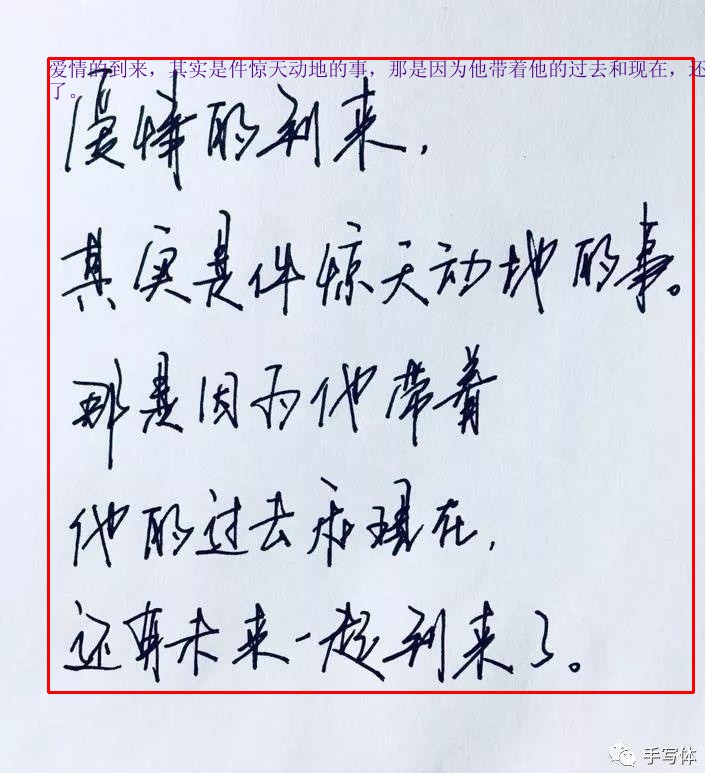 爱情的到来，其实是件惊天动地的事，那是因为他带着他的过去和现在，还
了。
爱情的到来，
其实是件惊天动地的事。
那是因为他带着
他的过去和现在，
还有未来一起到来了。
手写体